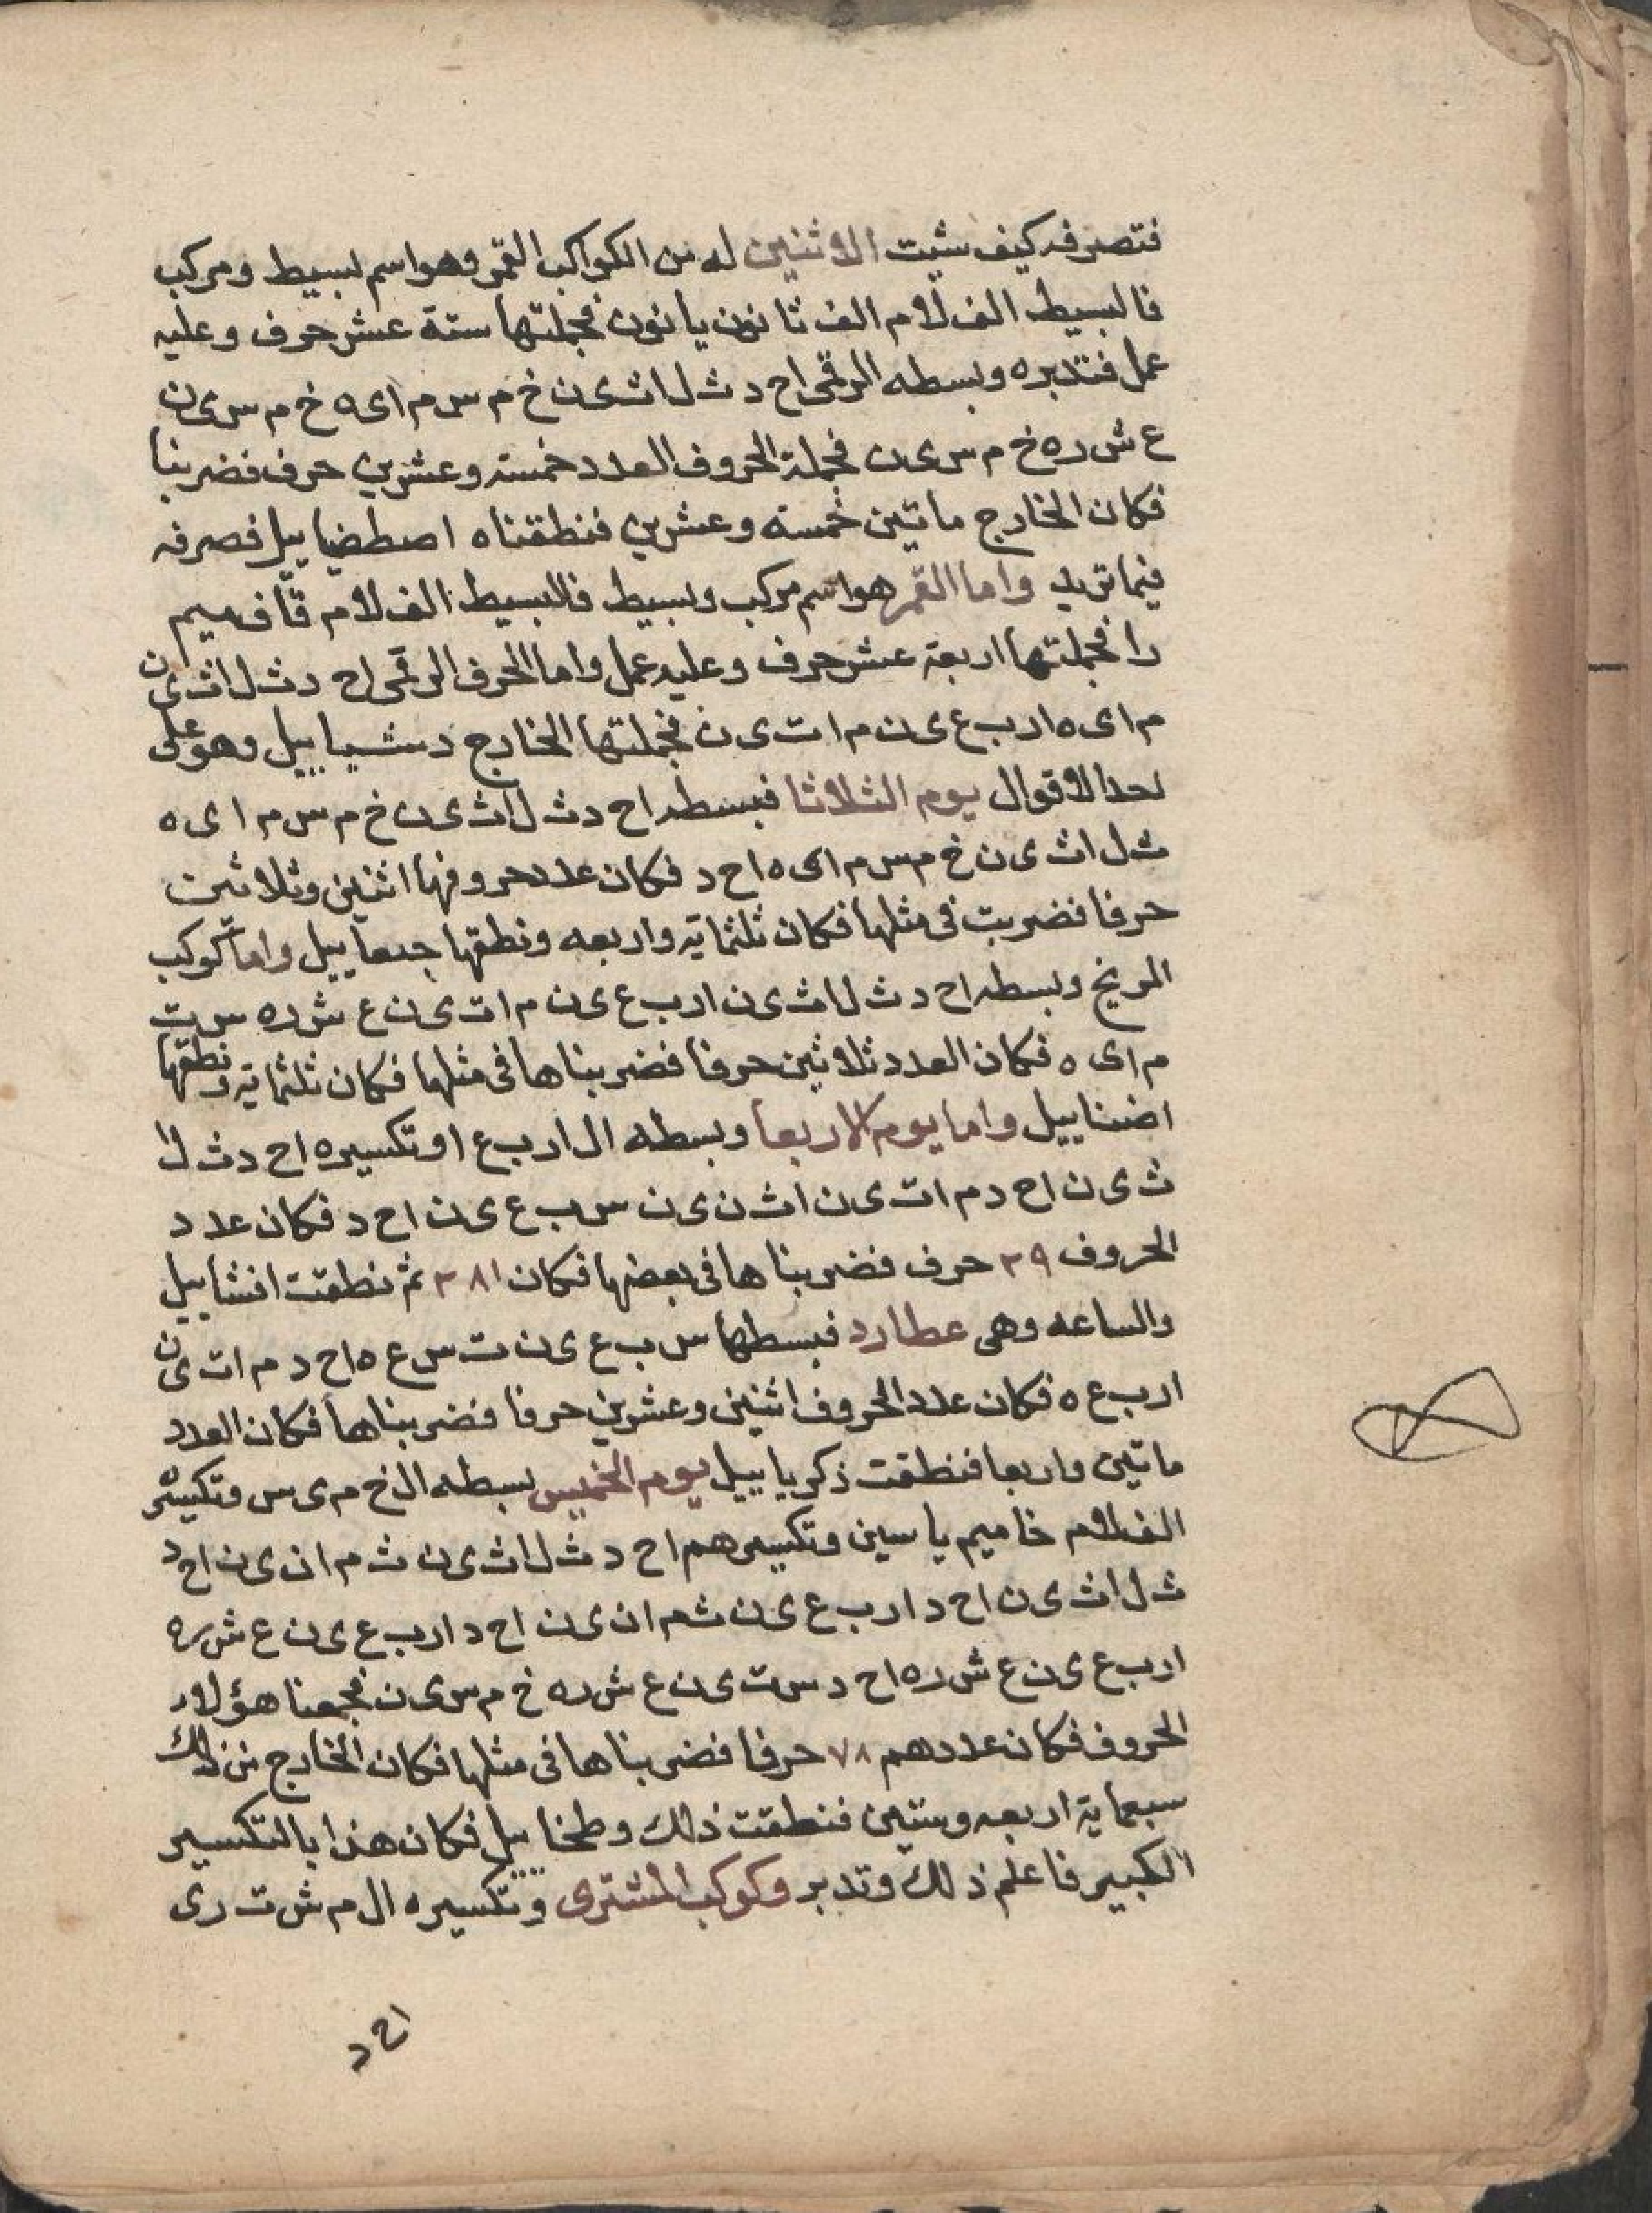 فتصرفه كيف شيت الاثنين له من الكواكب القمر وهو اسم بسيط ومركب
فالبسيط الف لام الف ثا نون يا نون فجملتها ستة عشر حرف وعليه
عمل فتدبره وبسطه الرقمى اح د ث ل اث ى ن خ م س م اى ه خ م س ى ن
ع ش ر ه خ م س ى ن فجملة الحروف العدد خمسه وعشرين حرف فضربنا
فكان الخارج ماتين خمسه وعشرين فنطقناه اصطضياييل فصرفه
فيما تريد واما القمر هو اسم مركب وبسيط فالبسيط الف لام قاف ميم
را فجملتها اربعة عشر حرف وعليه عمل واما الحرف الرقمى اح د ث ل اث ى ن
م اى ه ا ر ب ع ى ن م ات ى ن فجملتها الخارج دشياييل وهو على
احد الاقوال يوم الثلاثا فبسطه اح د ث ل اث ى ن خ م س م ا ى ه
ث ل اث ى ن خ م س م اى ه اح د فكان عدد حروفها اثنين وثلاثين
حرفا فضربت فى مثلها فكان ثلثماية واربعه ونطقها جدعاييل واما كوكب
المريخ وبسطه اح د ث ل اث ى ن ا ر ب ع ى ن م ات ى ن ع ش ر ه س ت
م اى ه فكان العدد ثلاثين حرفا فضربناها فى مثلها فكان ثلثماية ونطقها
اضناييل واما يوم الاربعا وبسطه ال ا ر ب ع ا وتكسيره اح د ث ل ا
ث ى ن اح د م ات ى ن اث ن ى ن س ب ع ى ن اح د فكان عدد
الحروف ٣٩ حرف فضربناها فى بعضها فكان ٣٨١ ثم نطقت افشاييل
والساعه وهى عطارد فبسطها س ب ع ى ن ت س ع ه اح د م ات ى ن
ا ر ب ع ه فكان عدد الحروف اثنين وعشرين حرفا فضربناها فكان العدد
ماتين واربعا فنطقت ذكرياييل يوم الخميس بسطه ال خ م ى س وتكسيره
الف لام خا ميم يا سين وتكسيرهم اح د ث ل اث ى ن ث م ان ى ن اح د
ث ل اث ى ن اح د ا ر ب ع ى ن ث م ان ى ن اح د ا ر ب ع ى ن ع ش ر ه
ا ر ب ع ى ن ع ش ر ه اح د س ت ى ن ع ش ر ه خ م س ى ن فجمعنا هؤلاء
الحروف فكان عددهم ٧٨ حرفا فضربناها فى مثلها فكان الخارج من ذلك
سبعماية اربعه وستين فنطقت ذلك وطخاييل فكان هذا بالتكسير
الكبير فاعلم ذلك وتدبر وكوكب المشترى وتكسيره ال م ش ت ر ى
اح د